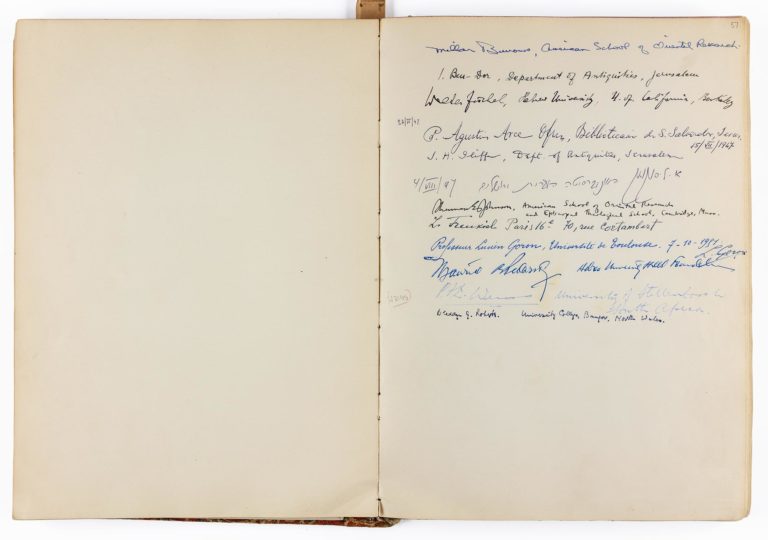 57
Millar Burrows, American School of Oriental Research
I. Ben-Dor, Department of Antiquities, Jerusalem
Walter Fischel, Hebrew University, U. of California, Berkeley
P. Agustin Arce Ofm, Bibliotecario de S. Salvador, Jerus.
15/VI/1947
J. H. Iliffe, Dept. of Antiquities, Jerusalem
4/VIII/47 האוניברסיטה העברית ירושלים
Sherman E. Johnson, American School of Oriental Research
and Episcopal Theological School, Cambridge, Mass.
Paris 16e 70, rue Cortambert
Professeur Lucien Goron, Université de Toulouse. 7-10-1951 L. Goron
Maurice University Hillel Foundation
University of Stellenbosch
South Africa.
University College, Bangor, North Wales.